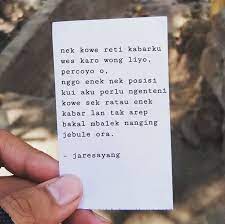 nek kowe reti kabarku
wes karo wong liyo,
percoyo o,
nggo enek nek posisi
kui aku perlu ngenteni
kowe sek ratau enek
kabar lan tak arep
bakal mbalek nanging
jebule ora.
- jaresayang